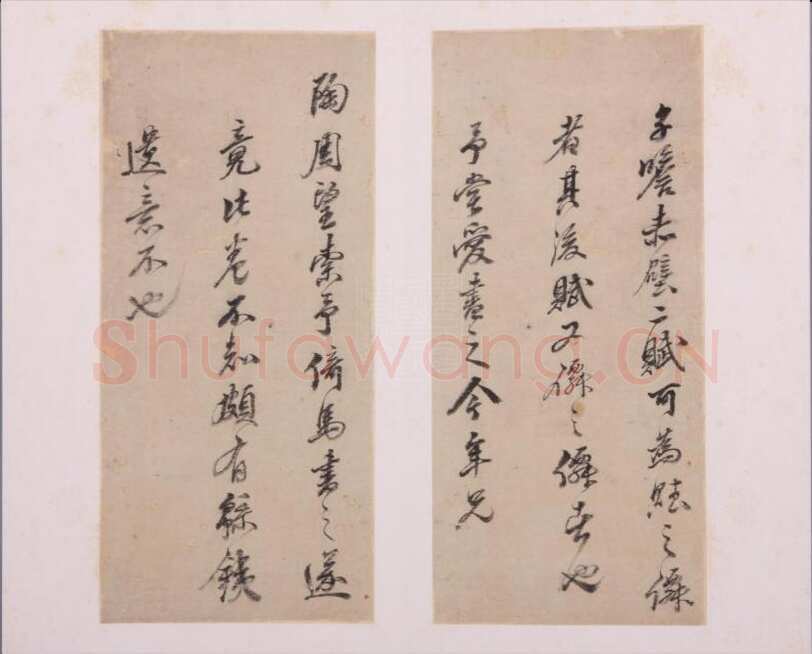 子瞻赤壁二賦可為賦之僊
者其後賦又僊之僊者也
予嘗愛書之今年兄
陶周望索予倚馬書之遂
竟此卷不知頗有
遺意不也
Shufawang.CN